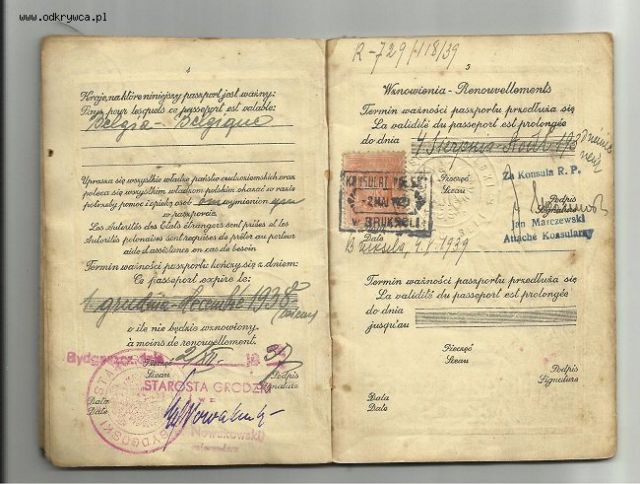 www.odkrywca.pl
4
Kraje, na które niniejszy paszport jest ważny:
Pays pour lesquels ce passeport est valable:
Belgia - Belgique
Uprasza się wszystkie władze państw cudzoziemskich oraz
poleca się wszystkim władzom polskim okazać w razie
potrzeby pomoc i opiekę osobom wymienionym
w paszporcie.
Les Autorités des Etats étrangers sont priées et les
Autorités polonaises sont requises de prêter au porteur
aide et assistance en cas de besoin
Termin ważności paszportu kończy się z dniem:
Ce passeport expire le:
1 grudnia - decembre 1938
o ile nie będzie wznowiony.
à moins de renouvellement.
Bydgoszcz, dnia 2/XII
Pieczęć
Sceau
Podpis
Signature
STAROSTA GRODZKI
BYDGOSKI
Data
Date
Nowakowski
R-729/118/39
5
Wznowienia - Renouvellements
Termin ważności paszportu przedłuża się
La validité du passeport est prolongée
do dnia 4 Sierpnia - Août 193
Pieczęć
Sceau
Za Konsula R. P.
KONSULAT POLSKI
W BRUKSELI
Podpis
Signature
Jan Marczewski
Attaché Konsularny
Data
Date
Bruksela, 4.V.1939
Termin ważności paszportu przedłuża się
La validité du passeport est prolongée
do dnia
jusqu'au
Pieczęć
Sceau
Podpis
Signature
Data
Date